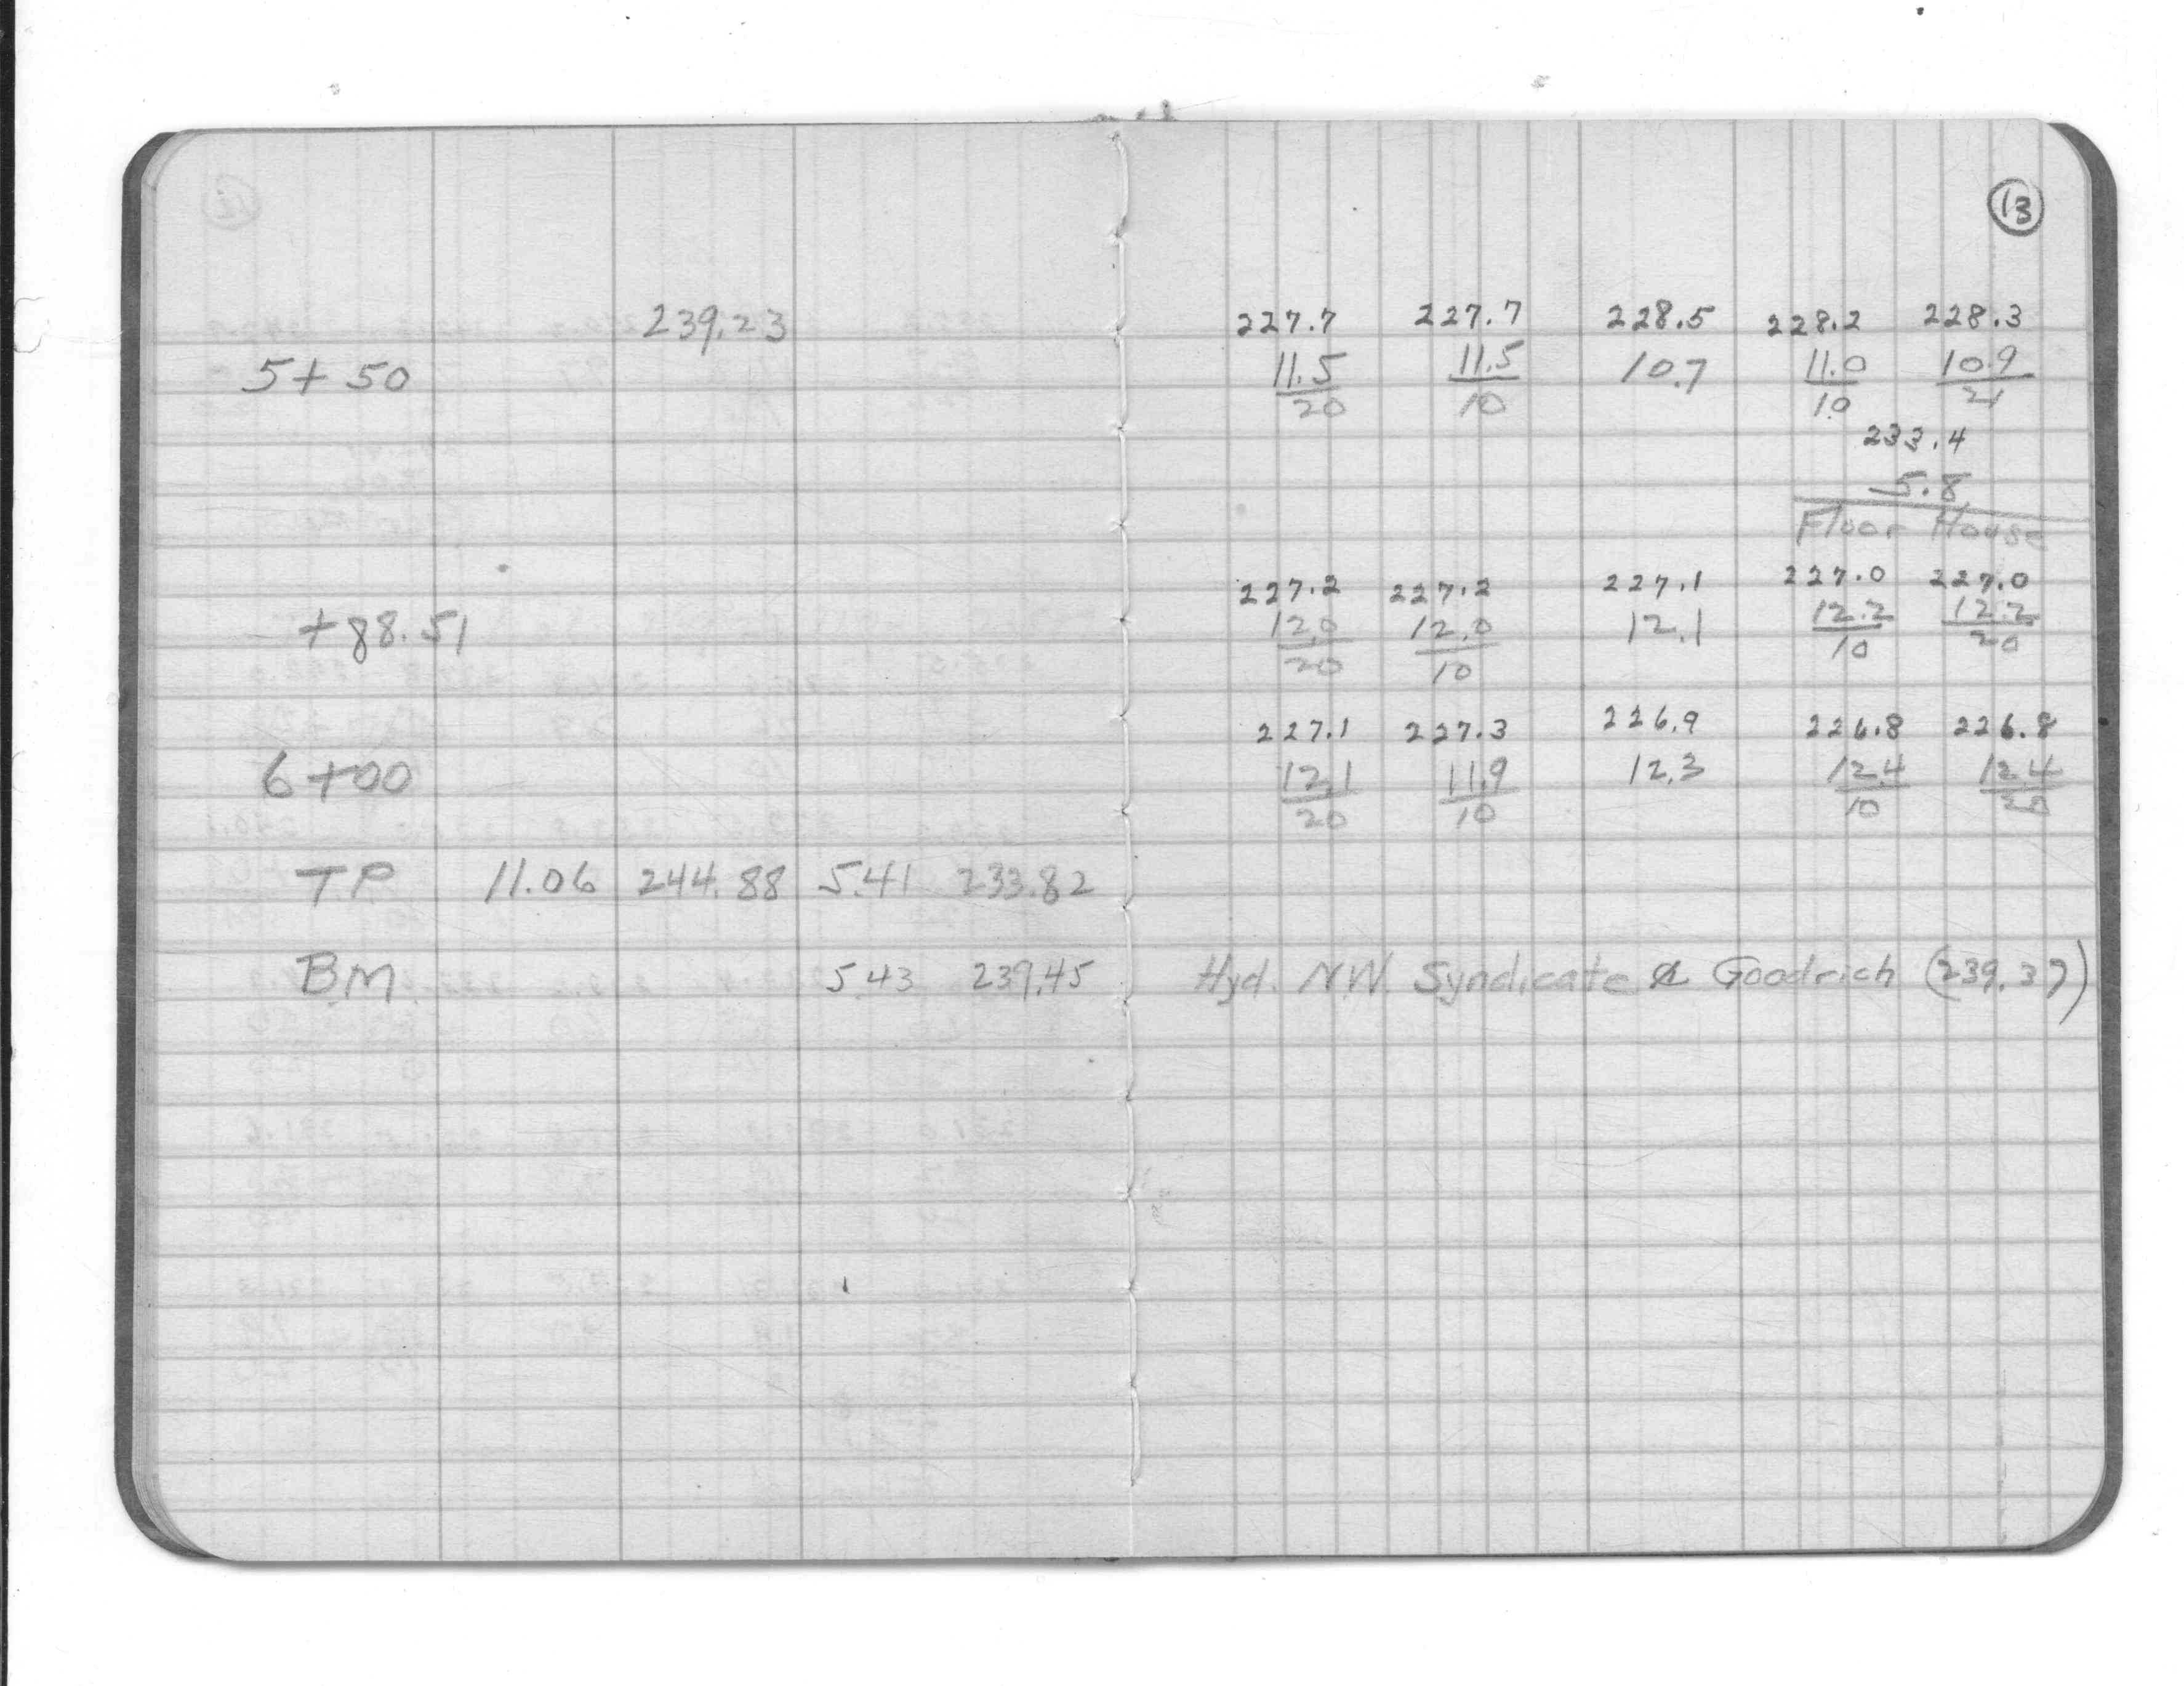 13
239.23 227.7 227.7 228.5 228.2 228.3
5+50 11.5 11.5 10.7 11.0 10.9
20 10 10 21
233.4
5.8
Floor House
227.2 227.2 227.1 227.0 227.0
+88.51 12.0 12.0 12.1 12.2 12.2
20 10 10 20
227.1 227.3 226.9 226.8 226.8
6+00 12.1 11.9 12.3 12.4 12.4
20 10 10 20
T.P. 11.06 244.88 5.41 233.82
BM 5.43 239.45 Hyd. N.W. Syndicate & Goodrich (239.37)